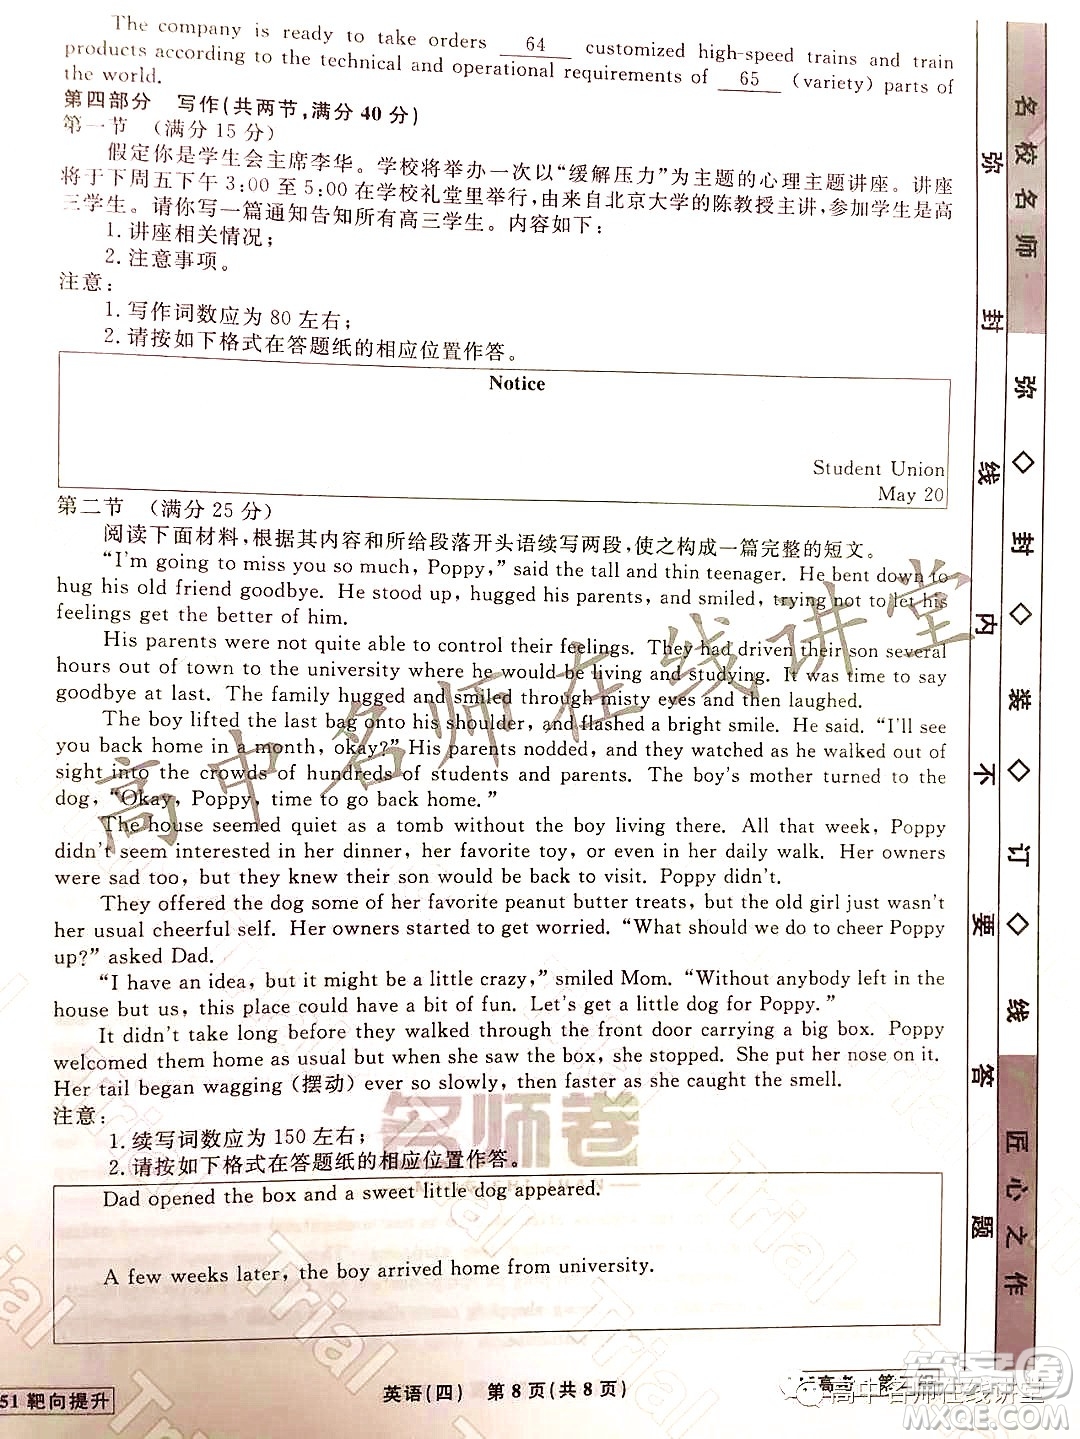 The company is ready to take orders 64 customized high-speed trains and train
products according to the technical and operational requirements of 65 (variety) parts of
the world.
第四部分 写作(共两节,满分40分)
第一节 (满分15分)
假定你是学生会主席李华。学校将举办一次以“缓解压力”为主题的心理主题讲座。讲座
将于下周五下午3:00至5:00在学校礼堂里举行,由来自北京大学的陈教授主讲,参加学生是高
三学生。请你写一篇通知告知所有高三学生。内容如下:
1. 讲座相关情况;
2. 注意事项。
注意:
1. 写作词数应为80左右;
2. 请按如下格式在答题纸的相应位置作答。
Notice
Student Union
May 20
第二节 (满分25分)
阅读下面材料,根据其内容和所给段落开头语续写两段,使之构成一篇完整的短文。
“I'm going to miss you so much, Poppy,” said the tall and thin teenager. He bent down to
hug his old friend goodbye. He stood up, hugged his parents, and smiled, trying not to let his
feelings get the better of him.
His parents were not quite able to control their feelings. They had driven their son several
hours out of town to the university where he would be living and studying. It was time to say
goodbye at last. The family hugged and smiled through misty eyes and then laughed.
The boy lifted the last bag onto his shoulder, and flashed a bright smile. He said. “I'll see
you back home in a month, okay?” His parents nodded, and they watched as he walked out of
sight into the crowds of hundreds of students and parents. The boy's mother turned to the
dog, “Okay, Poppy, time to go back home.”
The house seemed quiet as a tomb without the boy living there. All that week, Poppy
didn't seem interested in her dinner, her favorite toy, or even in her daily walk. Her owners
were sad too, but they knew their son would be back to visit. Poppy didn't.
They offered the dog some of her favorite peanut butter treats, but the old girl just wasn't
her usual cheerful self. Her owners started to get worried. “What should we do to cheer Poppy
up?” asked Dad.
“I have an idea, but it might be a little crazy,” smiled Mom. “Without anybody left in the
house but us, this place could have a bit of fun. Let's get a little dog for Poppy.”
It didn't take long before they walked through the front door carrying a big box. Poppy
welcomed them home as usual but when she saw the box, she stopped. She put her nose on it.
Her tail began wagging (摆动) ever so slowly, then faster as she caught the smell.
注意:
1. 续写词数应为150左右;
2. 请按如下格式在答题纸的相应位置作答。
Dad opened the box and a sweet little dog appeared.
A few weeks later, the boy arrived home from university.
51 靶向提升
英语(四) 第8页(共8页)
高中名师在线讲堂
高中名师在线讲堂
名师卷
Trial
Trial
Trial
Trial
Trial
Trial
答案圈
MXQE.COM
名校名师
弥◇封◇装◇订◇线
匠心之作
弥封线内不要答题